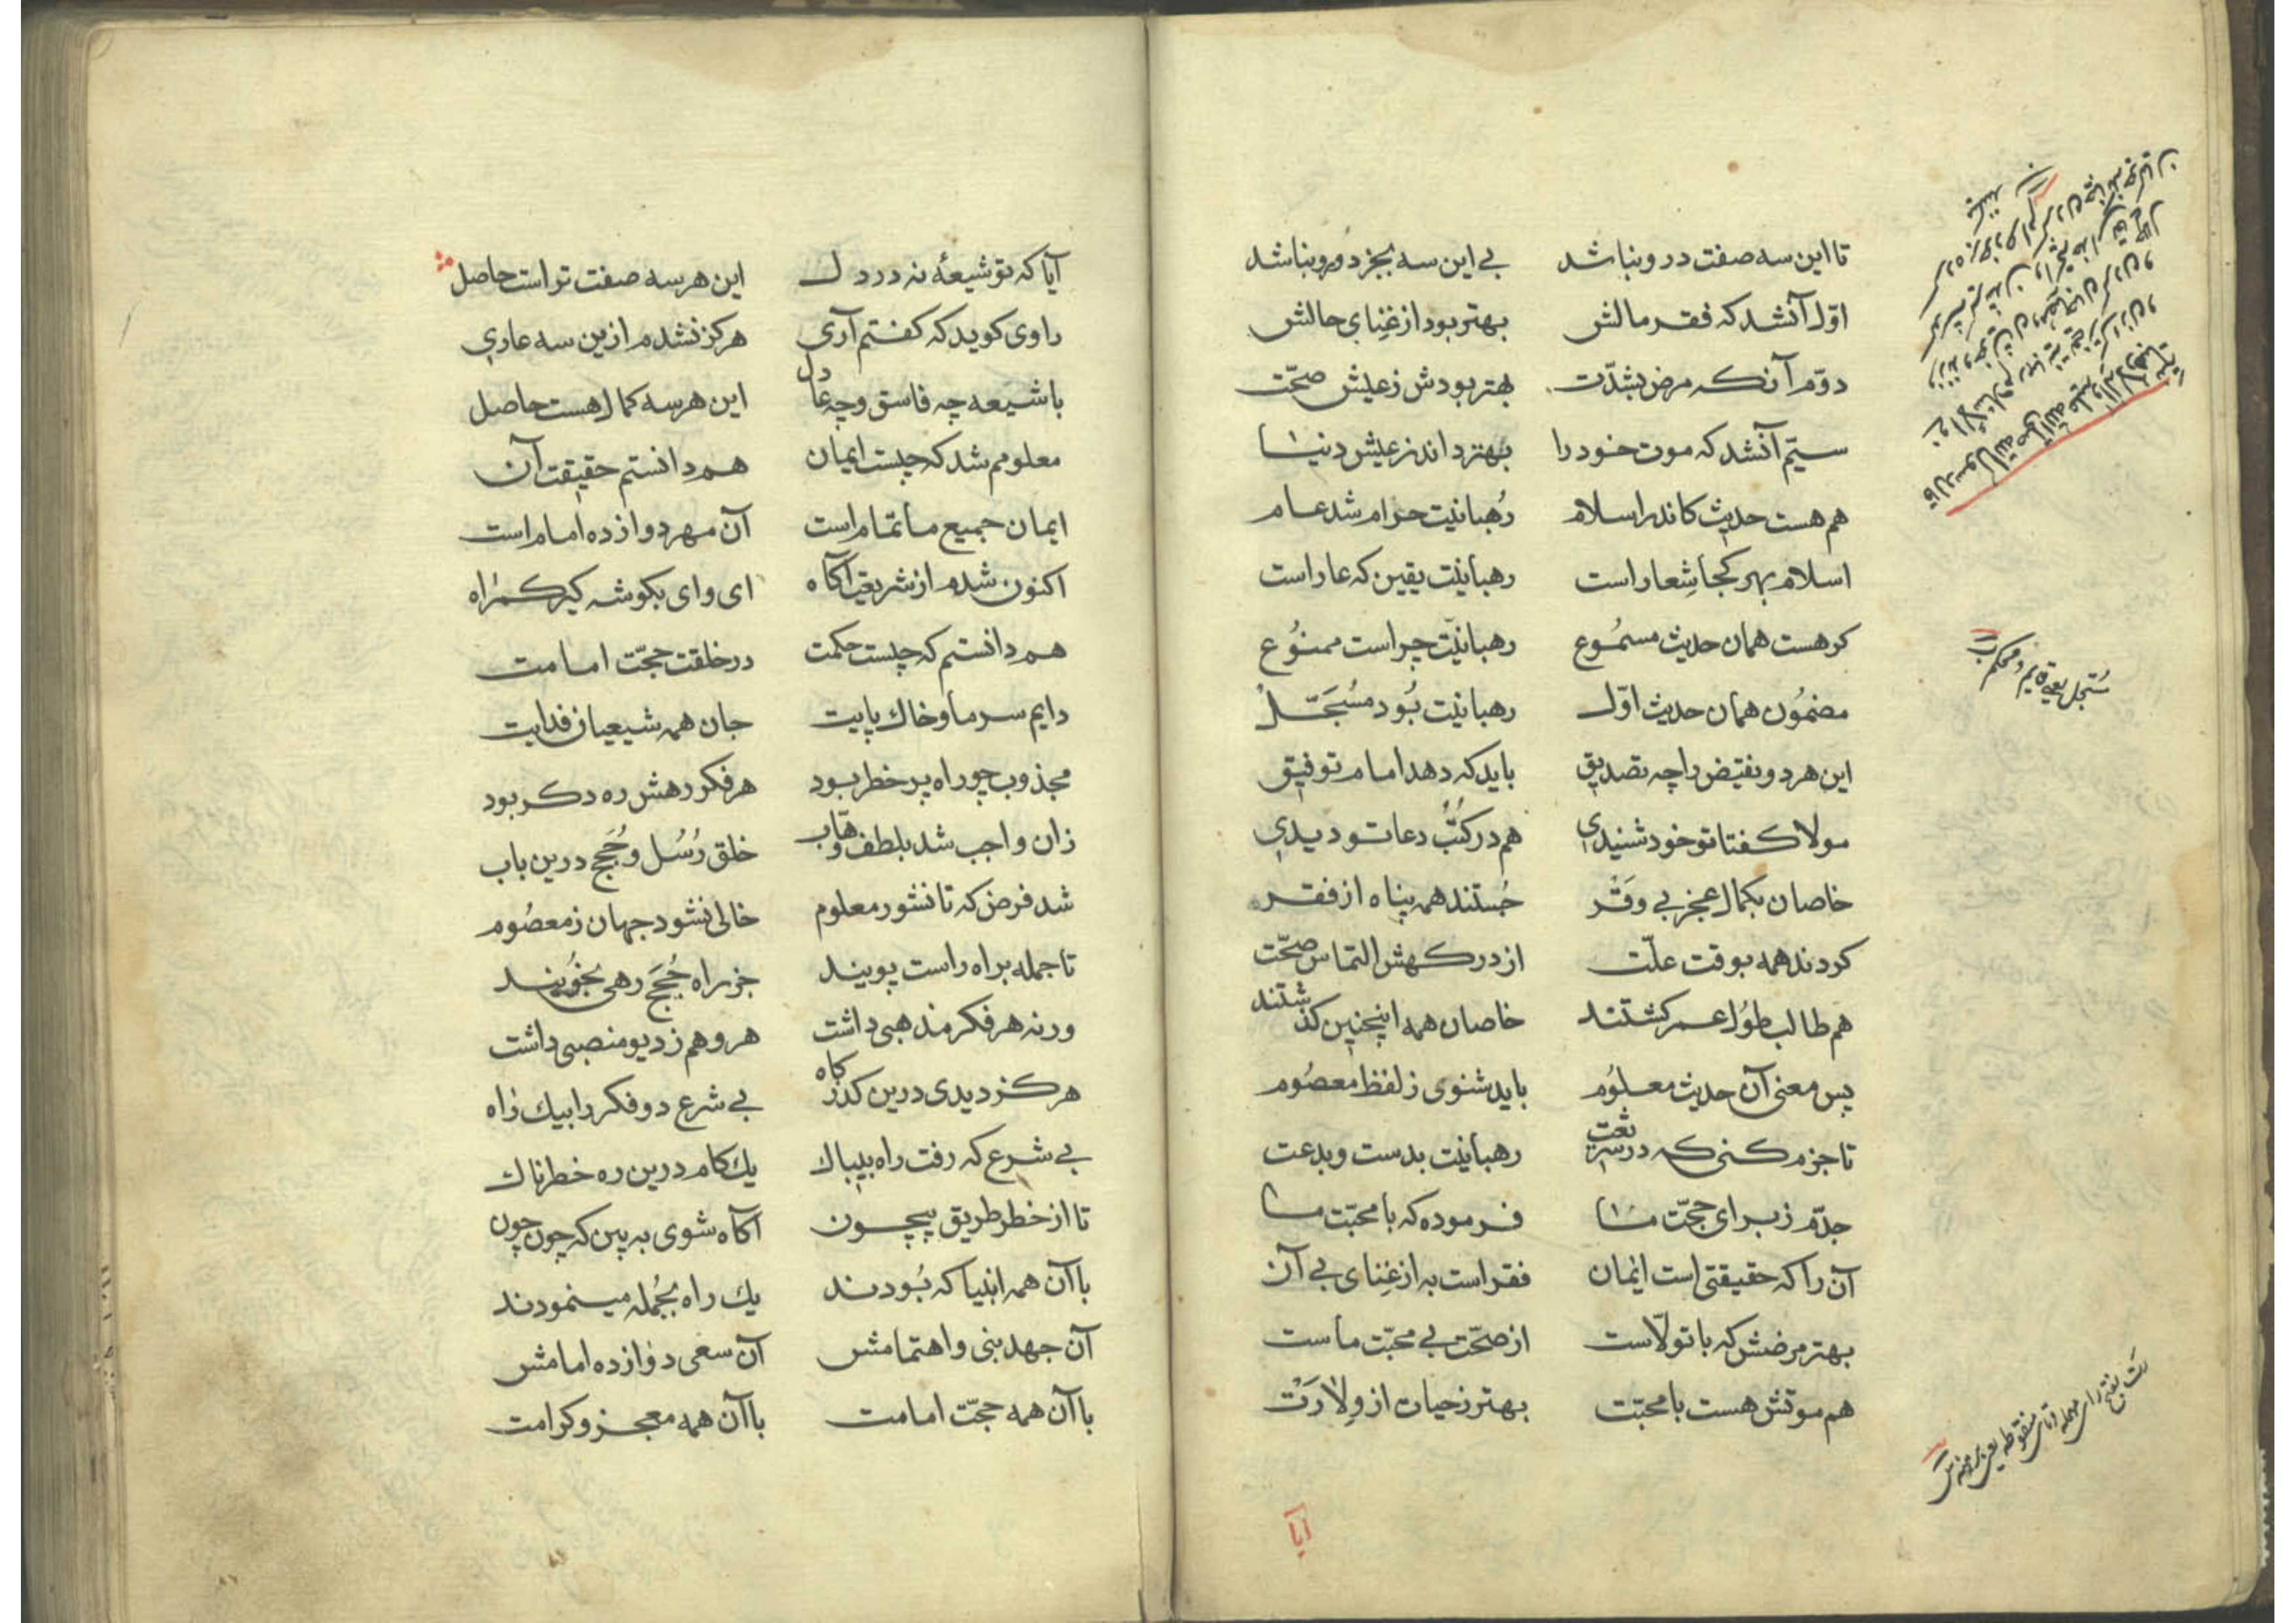 تا این سه صفت درو نباشد بی این سه بجز دورو نباشد
اوّل آنشد که فقر مالش بهتر بود از غنِای حالش
دوّم آنکه مرض بشدّت بهتر بودش ز عیش صحّت
سیّم آنشد که موت خود را بهتر داند ز عیش دنیا
هم هست حدیث کاندر اسلام رُهبانیّت حرام شد عام
اسلام بهر کجا شِعار است رهبانیّت یقین که عار است
کر هست همان حدیث مسمُوع رهبانیّت چراست ممنُوع
مضمُون همان حدیث اوّل رهبانیّت بُود مسُجَّل
این هر دو نقیض را چه تصدیق باید که دهد امام توفیق
مولا کفتا تو خود شنیدی هم در کتُب دعا تو دیدی
خاصان بکمال عجز بی وَقْر جُستند همه پناه از فقر
کردند همه بوقت علّت از درکهش التماس صحّت
هم طالب طُول عمر کشتند خاصان همه اینچنین کذشتند
پس معنی آن حدیث معلُوم باید شنوی ز لفظ معصُوم
تا جزم کنی که در شریعت رهبانیّت بدست و بدعت
جدّم ز برای حجّت ما فرموده که با محبّت ما
آن را که حقیقتی است ایمان فقر است به از غِنای بی آن
بهتر مرضش که با تولّاست از صحّت بی محبّت ماست
هم موتش هست با محبّت بهتر ز حیات از وِلا رَتْ
ایا
قال رسول الله صلی الله علیه و آله
مُسَجّل یعنی قایم و محکم
رَت بفتح رای مهمله و تای منقوطه یعنی برهنه
آیا که تو شیعهٔ نه در دل این هر سه صفت تو است حاصل
راوی کوید که کفتم آری هرکز نشدم ازین سه عاری
با شیعه چه فاسق و چه عادل این هر سه کمال هست حاصل
معلومم شد که چیست ایمان هم دانستم حقیقت آن
ایمان جمیع ما تمام است آن مهر دوازده امام است
اکنون شدم از شریعت آکاه ای وای بکوشه کیر کمراه
هم دانستم که چیست حکمت در خلقت حجّت امامت
دایم سر ما و خاك پایت جان همه شیعیان فدایت
مجذوب چو راه پر خطر بود هر فکر رهش ره دکر بود
زان واجب شد بلطف وهّاب خلق رُسُل و حُجَج درین باب
شد فرض که تا نشور معلوم خالی نشود جهان ز معصُوم
تا جمله براه راست پویند جز راه حُجَج رهی نجُویند
ورنه هر فکر مذهبی داشت هر وهم ز دیو منصبی داشت
هرکز دیدی درین کذرکاه بی شرع دو فکر را بیك راه
بی شرع که رفت راه بیباك یك کام درین ره خطرناك
تا از خطر طریق بیچون آکاه شوی ببین که چون چون
با آن همه انبیا که بُودند یك راه بجُمله مینمودند
آن جهد نبی و اهتمامش آن سعی دوازده امامش
با آن همه حجّت امامت با آن همه معجز و کرامت